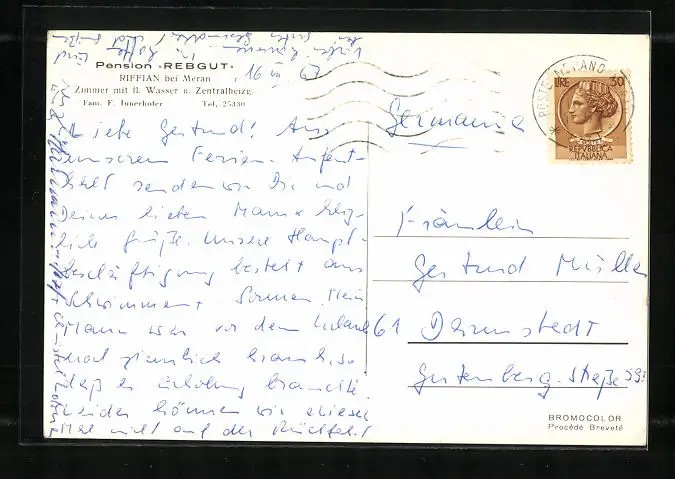 Pension »REBGUT«
RIFFIAN bei Meran
Zimmer mit fl. Wasser u. Zentralheizg.
Fam. F. Innerhofer Tel. 25330
16 VII 67
Liebe Gertrud! Aus
unserem Ferien-Aufent-
halt senden wir Dir und
Deinem lieben Mann herz-
liche Grüße. Unsere Haupt-
beschäftigung besteht aus
Schwimmen + Sonnen. Mein
Mann war vor dem Urlaub
noch ziemlich krank, so
daß er Erholung brauchte.
Leider können wir dieses
Mal nicht auf der Rückfahrt
Germania
POSTE MERANO
LIRE 30
REPVBBLICA
ITALIANA
Fräulein
Gertrud Müller
61 Darmstadt
Gutenberg-Straße
BROMOCOLOR
Procédé Breveté